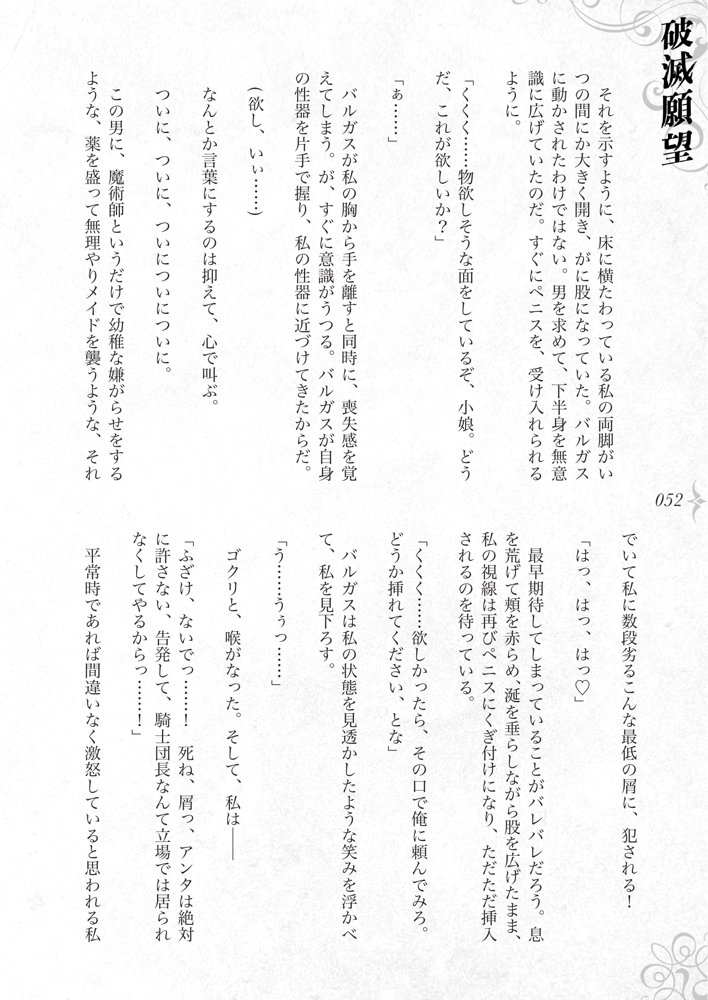 破滅願望
それを示すように、床に横たわっている私の両脚がい
つの間にか大きく開き、がに股になっていた。バルガス
に動かされたわけではない。男を求めて、下半身を無意
識に広げていたのだ。すぐにペニスを、受け入れられる
ように。
「くくく……物欲しそうな面をしているぞ、小娘。どう
だ、これが欲しいか？」
「ぁ……」
バルガスが私の胸から手を離すと同時に、喪失感を覚
えてしまう。が、すぐに意識がうつる。バルガスが自身
の性器を片手で握り、私の性器に近づけてきたからだ。
(欲し、いぃ……)
なんとか言葉にするのは抑えて、心で叫ぶ。
ついに、ついに、ついについについに。
この男に、魔術師というだけで幼稚な嫌がらせをする
ような、薬を盛って無理やりメイドを襲うような、それ
052
でいて私に数段劣るこんな最低の屑に、犯される！
「はっ、はっ、はっ♡」
最早期待してしまっていることがバレバレだろう。息
を荒げて頬を赤らめ、涎を垂らしながら股を広げたまま、
私の視線は再びペニスにくぎ付けになり、ただただ挿入
されるのを待っている。
「くくく……欲しかったら、その口で俺に頼んでみろ。
どうか挿れてください、とな」
バルガスは私の状態を見透かしたような笑みを浮かべ
て、私を見下ろす。
「う……うぅっ……」
ゴクリと、喉がなった。そして、私は――
「ふざけ、ないでっ……！　死ね、屑っ、アンタは絶対
に許さない、告発して、騎士団長なんて立場では居られ
なくしてやるからっ……！」
平常時であれば間違いなく激怒していると思われる私